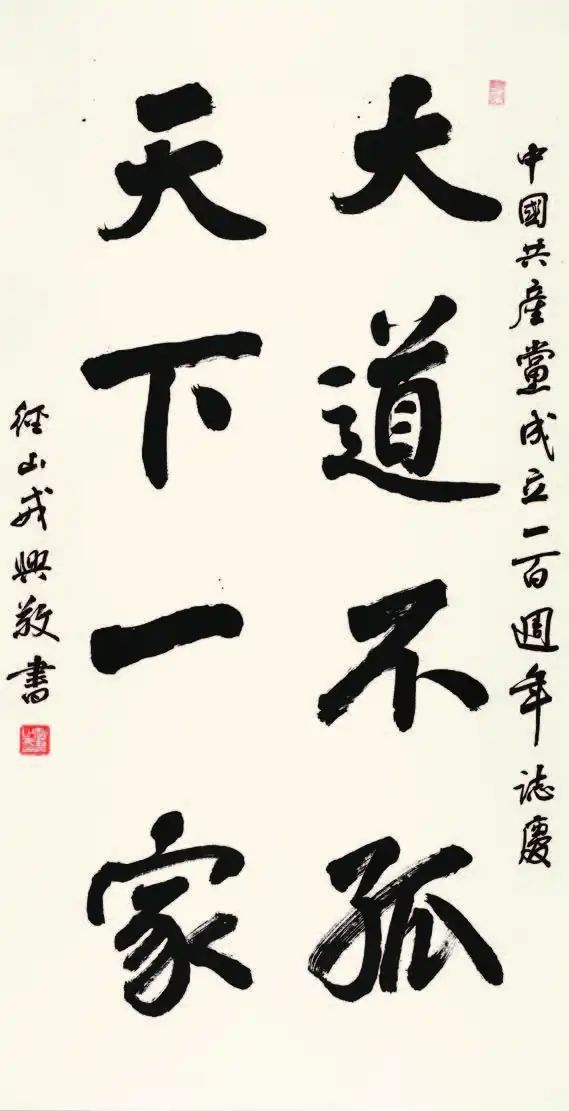 中國共產黨成立一百週年誌慶
大道不孤
天下一家
徑山戒興敬書